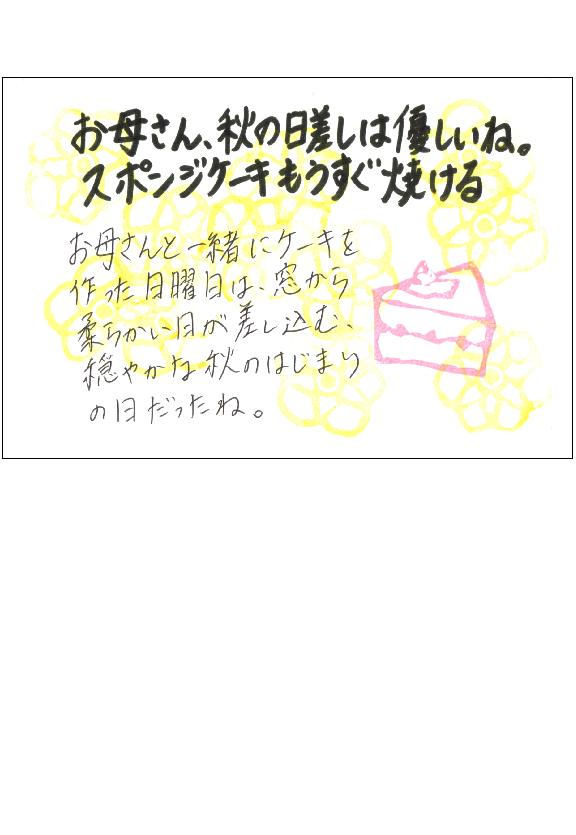 お母さん、秋の日差しは優しいね。
スポンジケーキもうすぐ焼ける
お母さんと一緒にケーキを
作った日曜日は、窓から
柔らかい日が差し込む、
穏やかな秋のはじまり
の日だったね。